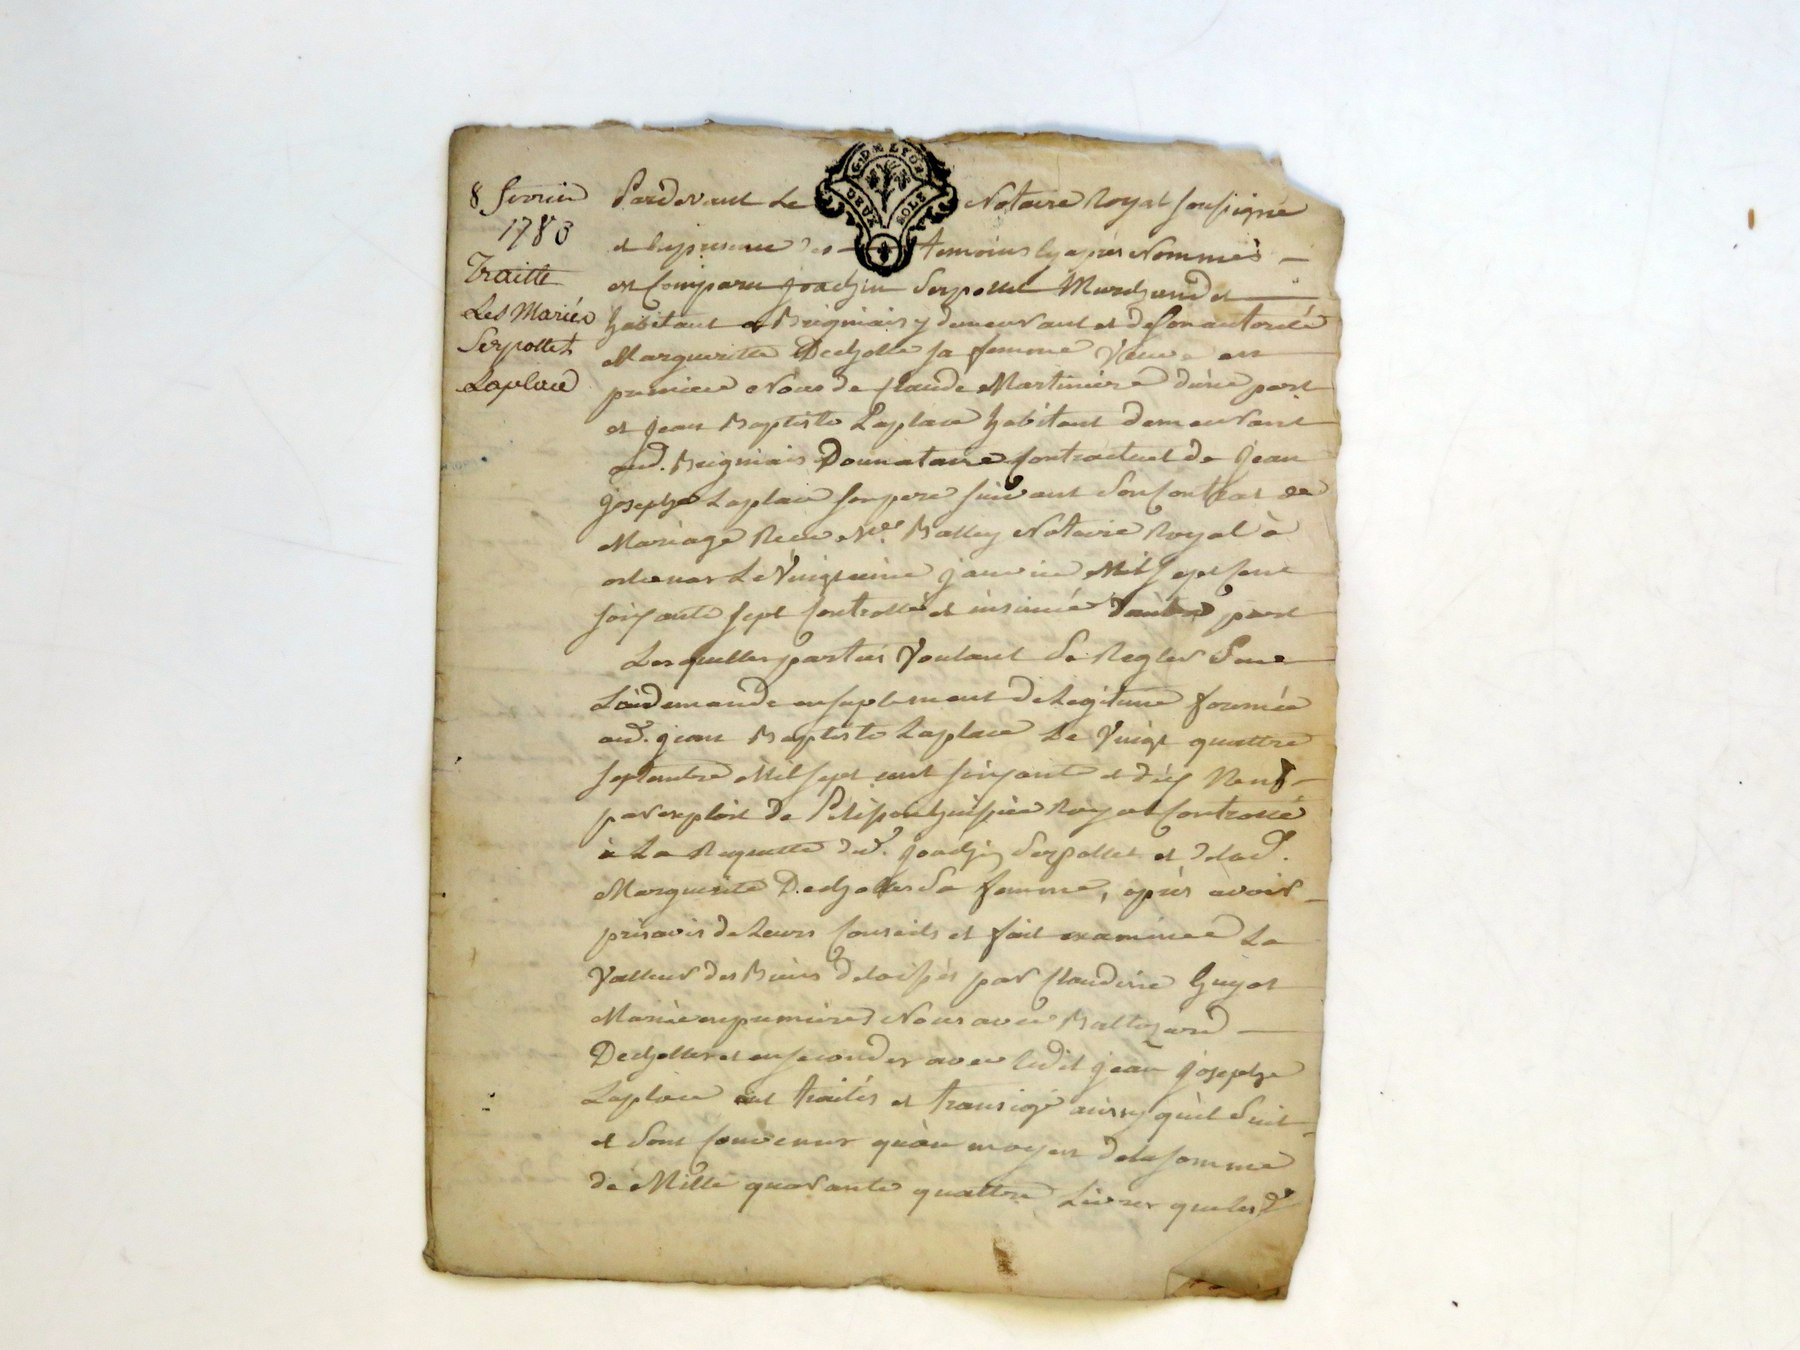 8 fevrier
1783
Traitté
Les Mariés
Serpollet
Laplace
G. DE LYON
DEUX
SOLS
Pardevant Le Notaire Royal soussigné
et En presence des temoins cy après Nommés
est Comparu Joachin Serpollet Marchand et
habitant a Brigniais y demeurant et de son autorité
Margueritte Decholle sa femme Veuve en
premiere Noce de Claude Martiniere d'une part
et Jean Baptiste Laplace habitant demeurant
aud. Brigniais Donnataire Contractuel de Jean
Josephe Laplace son pere suivant son Contrat de
Mariage Recu Me. Balley Notaire Royal à
Le Vingt janvier Mil sept Cent
soixante sept Controllé et insinué d'autre part
Lesquelles parties Voulant se Regler sur
La demande en suplement de Legitime formée
aud. jean Baptiste Laplace Le Vingt quattre
septembre Mil sept cent soixante et dix Neuf
par exploit de huissier Royal Controllé
à La Requette dud. Joachin Serpollet et de lad.
Marguerite Decholles sa femme, après avoir
pris avis de Leurs Conseils et fait examiner La
Valleur des Biens delaissés par Claudine Guyot
Mariée en premieres Noces avec Baltazard
Decholles et en secondes avec ledit jean josephe
Laplace ont traités et transigé ainsy qu'il suit
et sont Convenus qu'au moyen de la somme
de Mille quarante quattre Livres que lesd.